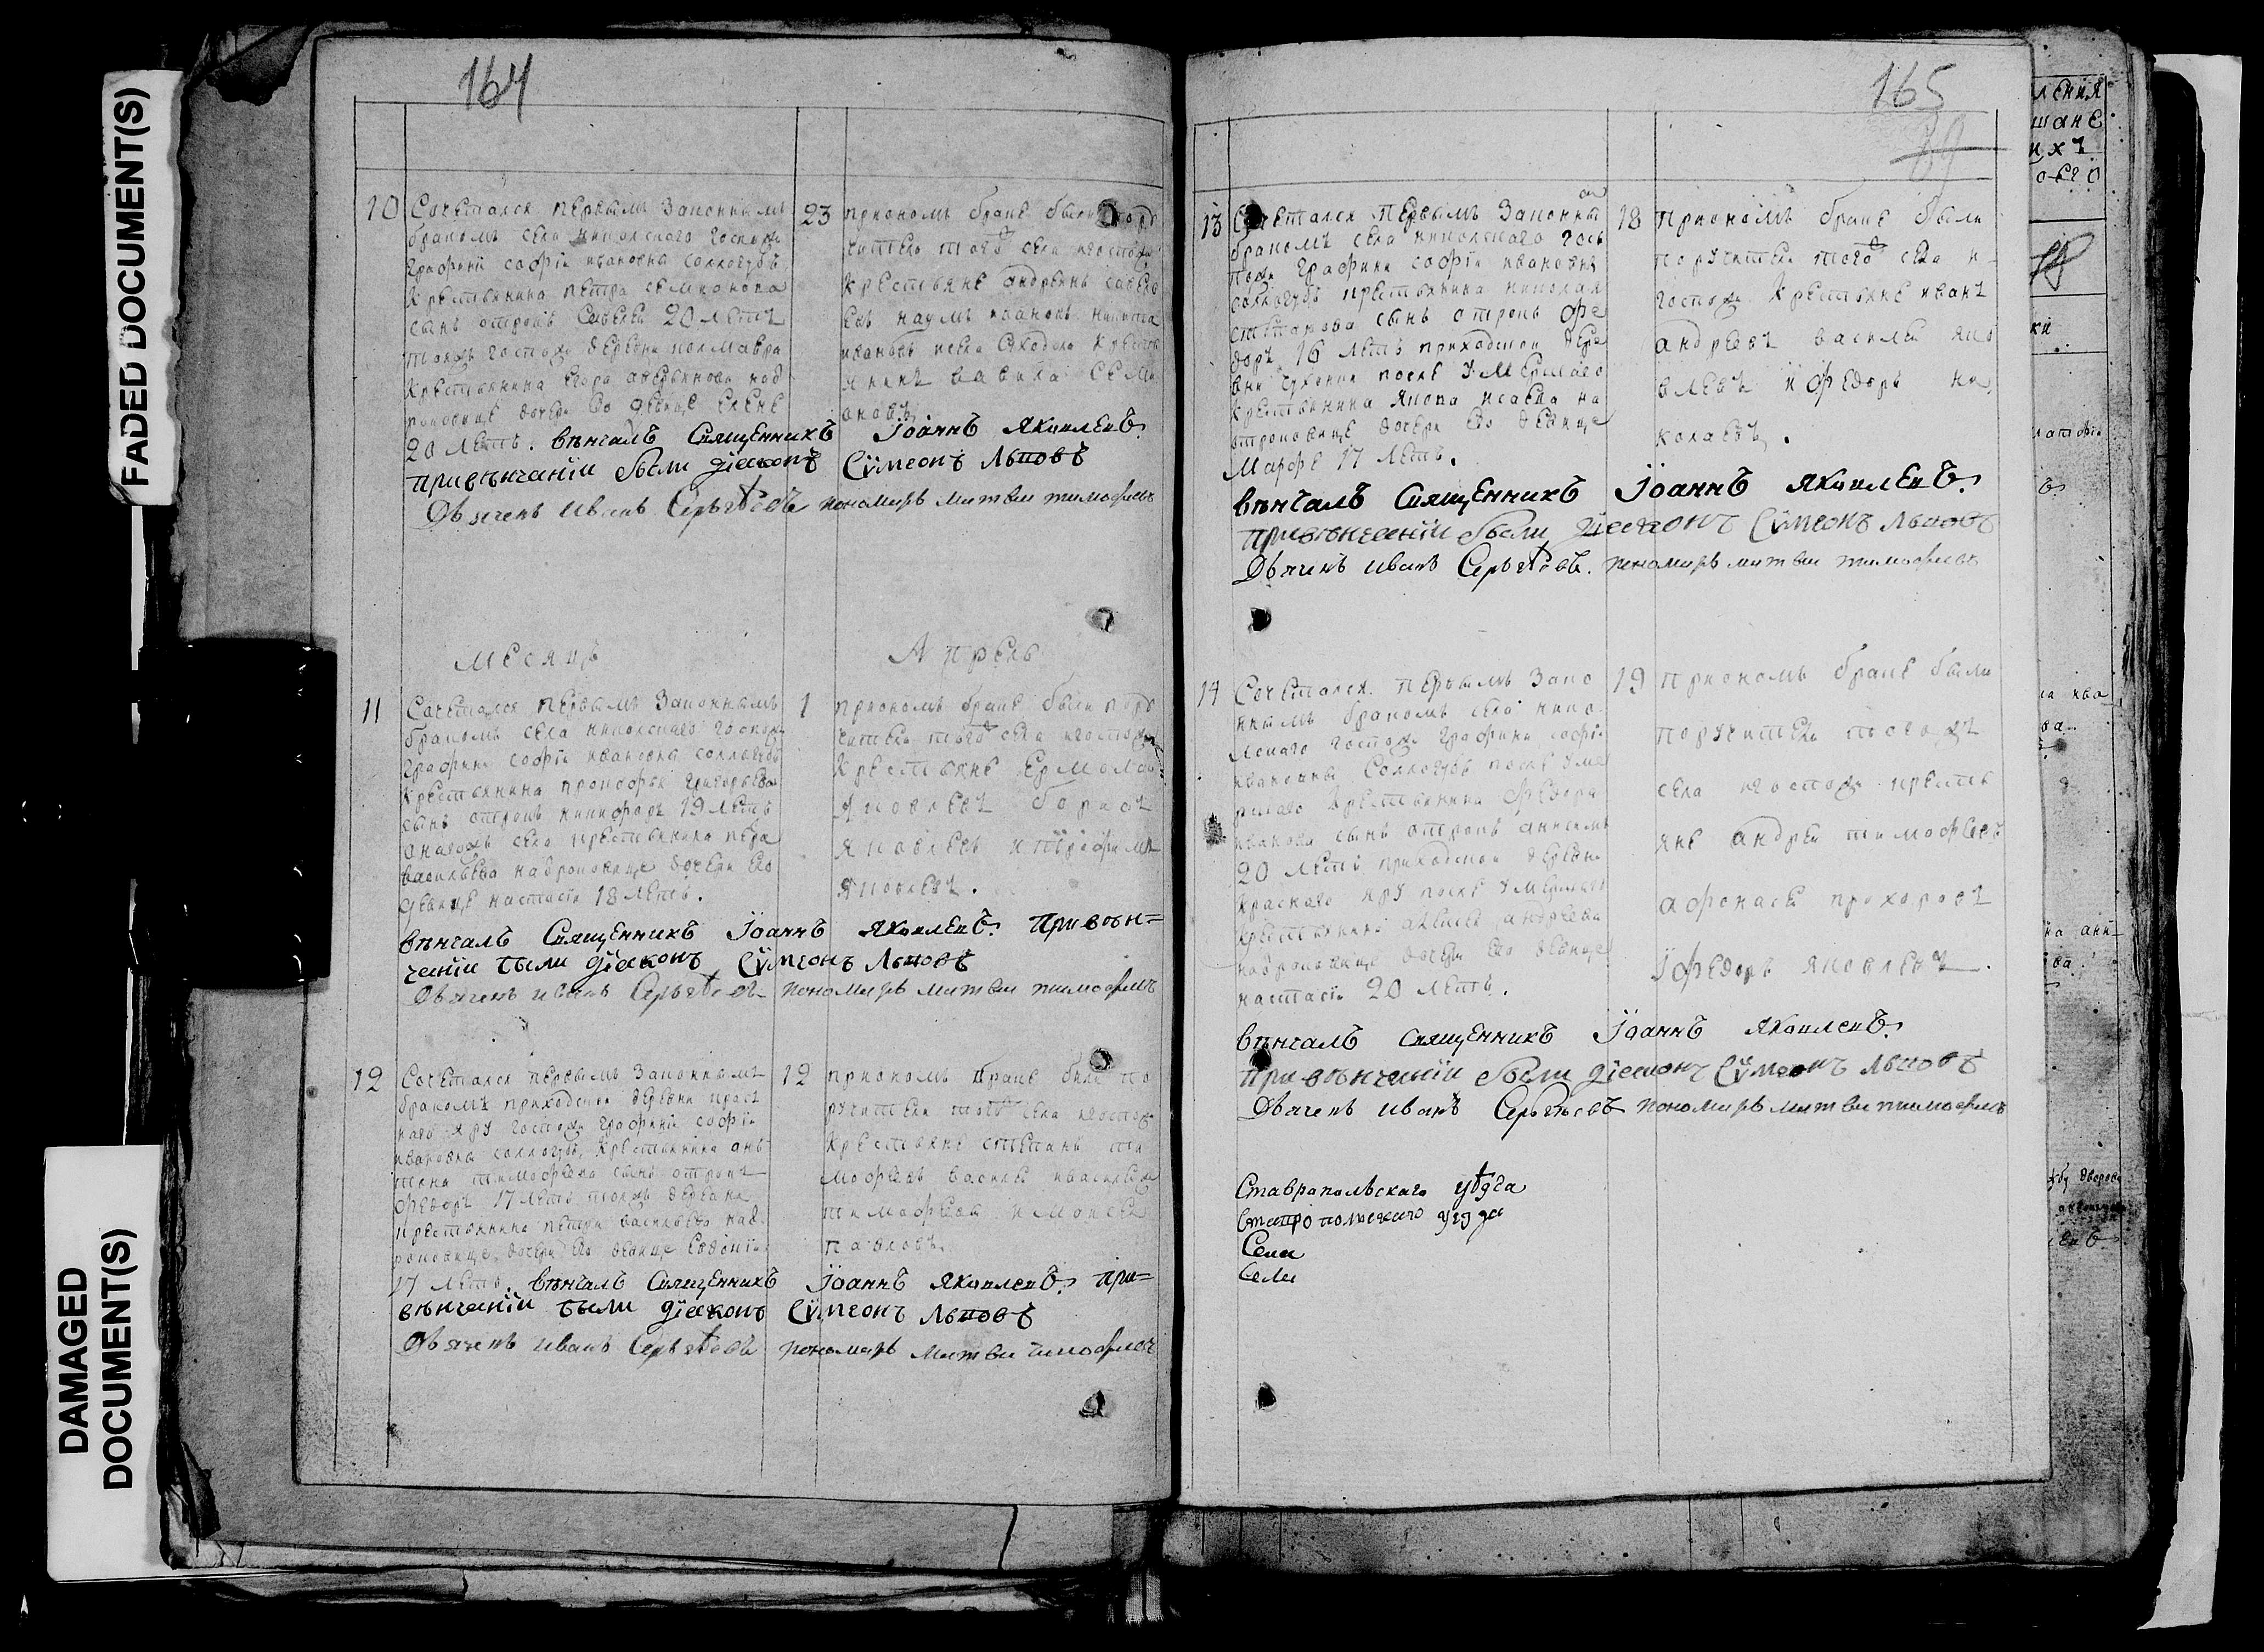 FADED DOCUMENT(S)
DAMAGED
DOCUMENT(S)
164
10
Сочетался первымъ законнымъ
бракомъ села никольского госпожи
графини софіи ивановна соллогубъ
крестьянина петра семионова
сынъ отрокъ савелеи 20 летъ
крестьянина егора аверьянова над
роковице дочери его девице елене
20 летъ. вѣнчалъ Священникъ Іоаннъ Яковлевъ.
привѣнчаніи были діаконъ Сүмеонъ Львовъ
Дьячекъ иванъ Сергѣевъ пономарь матвеи тимофеевъ
23
приономъ браке были пору
чители того села игоспожи
крестьяне андреянъ савель
евъ наумъ ивановъ никита
ивановъ
вавила семи
оновъ
месяцъ Апрель
11
Сочетался первымъ законнымъ
бракомъ села никольского госпожи
графини софіи ивановна соллогубъ
крестьянина прокофья григорьева
сынъ отрокъ никифоръ 19 летъ
села крестьянина петра
васильева надроковице дочери его
девице настасіи 18 летъ.
1
приономъ браке были пору
чители того села игоспожи
крестьяне ермолаи
яковлевъ борисъ
яковлевъ итрофимъ
яковлевъ.
вѣнчалъ Священникъ Іоаннъ Яковлевъ. привѣн=
чаніи были діаконъ Сүмеонъ Львовъ
Дьячекъ иванъ Сергѣевъ пономарь матвеи тимофеевъ
12
Сочетался первымъ законнымъ
бракомъ приходскои деревни крас
наго яру госпожи графини софіи
ивановна соллогубъ крестьянина ан
тона тимофеева сынъ отрокъ
федоръ 17 летъ тояжъ деревни
крестьянина петра васильева над
роковице дочери его девице евдокіи
17 летъ. вѣнчалъ Священникъ Іоаннъ Яковлевъ. при=
вѣнчаніи были діаконъ Сүмеонъ Львовъ
Дьячекъ иванъ Сергѣевъ пономарь матвеи тимофеевъ
12
приономъ браке были по
ручители того села игоспожи
крестьяне степанъ ти
мофеевъ василеи
тимофеевъ имоисеи
павловъ.
165
13
Сочетался первымъ законны
бракомъ села никольскаго гос
пожи графини софіи ивановны
соллогубъ крестьянина николая
степанова сынъ отрокъ фе
доръ 16 летъ приходскои дере
вни после умершаго
крестьянина якова исаева на
отроковице дочери его девице
Марфе 17 летъ.
18
приономъ браке были
поручители того села и
госпожи крестьяне иванъ
андреевъ василеи яко
влевъ ифедоръ ни
колаевъ.
вѣнчалъ Священникъ Іоаннъ Яковлевъ.
привѣнчаніи были діаконъ Сүмеонъ Львовъ
Дьячекъ иванъ Сергѣевъ. пономарь матвеи тимофеевъ
14
Сочетался первымъ зако
ннымъ бракомъ села нико
льскаго госпожи графини софіи
ивановны соллогубъ после уме
ршаго крестьянина федора
иванова сынъ отрокъ анисимъ
20 летъ приходскои деревни
краснаго яру после умершаго
крестьянина алексея андреева
надроковице дочери его девице
настасіи 20 летъ.
19
приономъ браке были
поручители тогожъ
села игоспожи кресть
яне андреи тимофеевъ
афонасеи прохоровъ
іфедоръ яковлевъ.
вѣнчалъ священникъ Іоаннъ Яковлевъ.
при вѣнчаніи были діаконъ Сүмеонъ Львовъ
Дьячекъ иванъ Сергѣевъ пономарь матвеи тимофеевъ
Ставропольскаго уѣзда
Ставропольскаго уезда
Села
Села